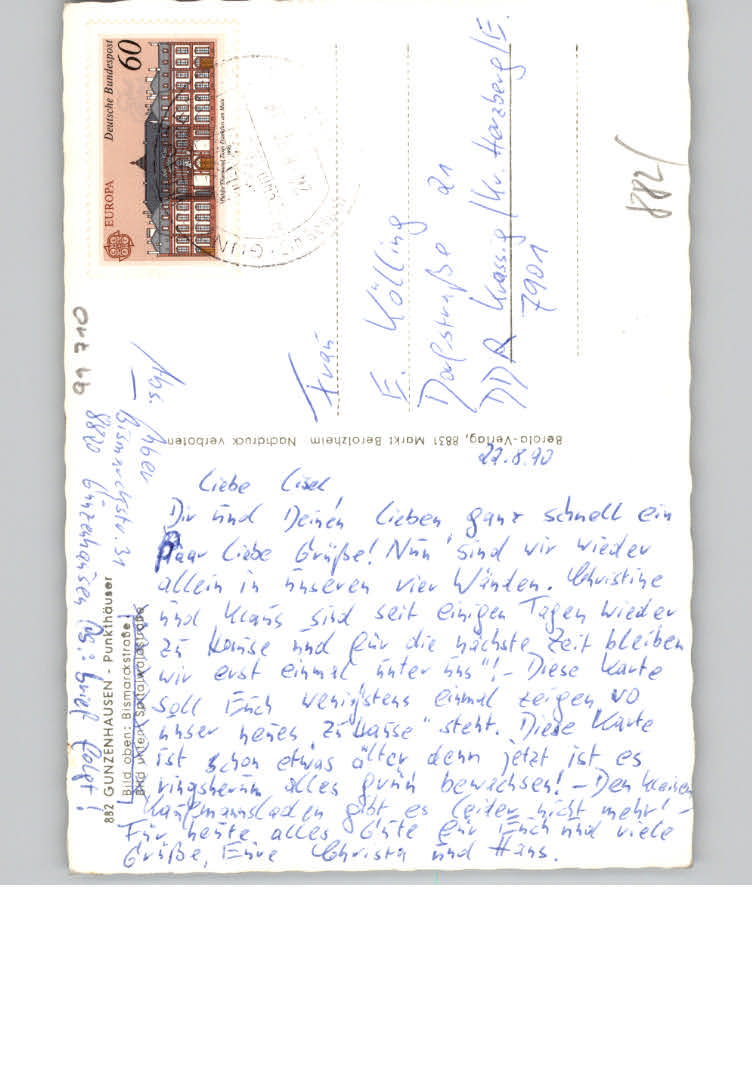 Deutsche Bundespost
60
EUROPA
Abs. Aber
Bismarckstr. 31
8820 Gunzenhausen
Ps.: Brief folgt!
01766
882/
Frau
E. Kölling
Dorfstraße 21
DDR Krassig / Kr. Herzberg/E.
7901
Berota-Verlag, 8831 Markt Berolzheim Nachdruck verboten
882 GUNZENHAUSEN - Punkthäuser
Bild oben: Bismarckstraße!
Bild unten:
22.8.90
Liebe Lisel
Dir und Deinen Lieben ganz schnell ein
paar liebe Grüße! Nun sind wir wieder
allein in unseren vier Wänden. Christine
und Klaus sind seit einigen Tagen wieder
zu Hause und für die nächste Zeit bleiben
wir erst einmal "unter uns"! – Diese Karte
soll Euch wenigstens einmal zeigen, wo
unser neues "Zuhause" steht. Diese Karte
ist schon etwas älter denn jetzt ist es
ringsherum alles grün bewachsen! – Den kleinen
Kaufmannsladen gibt es leider nicht mehr! –
Für heute alles Gute für Euch und viele
Grüße, Eure Christa und Hans.